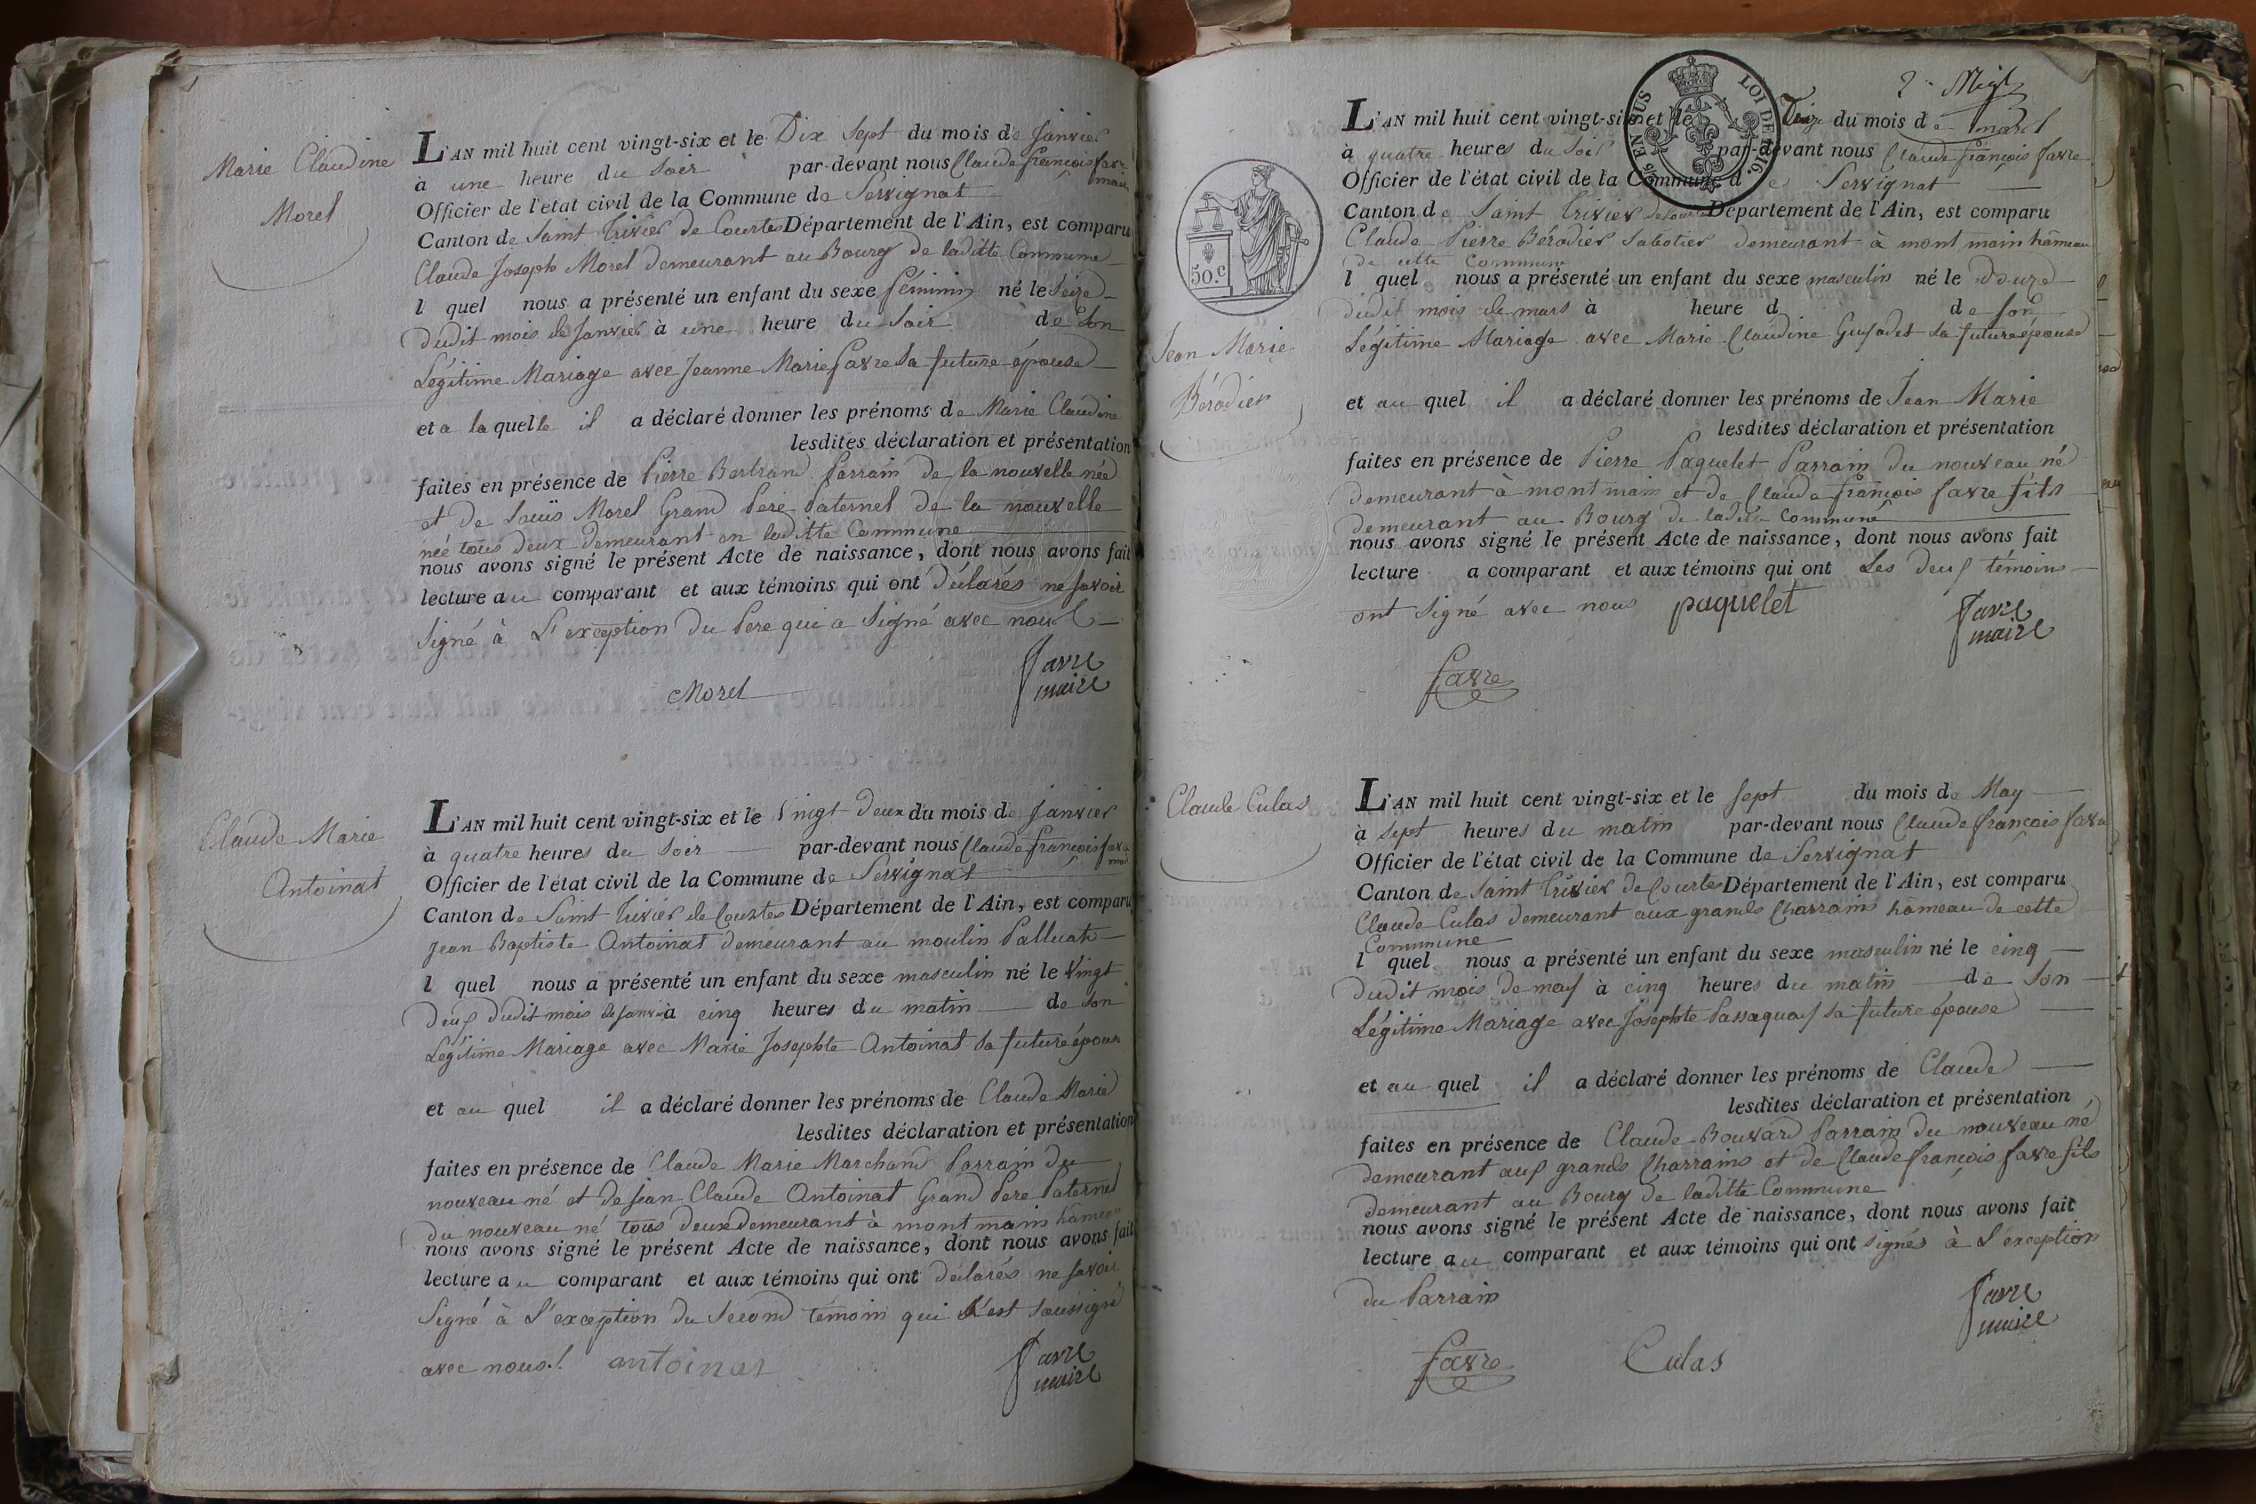 Marie Claudine
Morel
L'AN mil huit cent vingt-six et le Dix Sept du mois de Janvier
à une heure du Soir par-devant nous Claude françois favre
maire
Officier de l'état civil de la Commune de Servignat
Canton de Saint Trivier de Courtes Département de l'Ain, est comparu
Claude Joseph Morel demeurant au Bourg de laditte Commune
l quel nous a présenté un enfant du sexe féminin né le Seize
dudit mois de Janvier à une heure du Soir de Son
Légitime Mariage avec Jeanne Marie favre Sa future épouse
et a la quelle il a déclaré donner les prénoms de Marie Claudine
lesdites déclaration et présentation
faites en présence de Pierre Bertrand Parrain de la nouvelle née
et de Louis Morel Grand Pere Paternel de la nouvelle
née tous deux demeurant en laditte Commune
nous avons signé le présent Acte de naissance, dont nous avons fait
lecture au comparant et aux témoins qui ont déclarés ne savoir
Signé à L'exception du Pere qui a Signé avec nous
Morel
favre
maire
Claude Marie
Antoinat
L'AN mil huit cent vingt-six et le Vingt Deux du mois de Janvier
à quatre heures du Soir par-devant nous Claude françois favre
Officier de l'état civil de la Commune de Servignat
Canton de Saint Trivier de Courtes Département de l'Ain, est comparu
Jean Baptiste Antoinat demeurant au moulin Palluat
l quel nous a présenté un enfant du sexe masculin né le Vingt
Deux dudit mois de Janvier à cinq heures du matin de Son
Légitime Mariage avec Marie Josephte Antoinat Sa future épouse
et au quel il a déclaré donner les prénoms de Claude Marie
lesdites déclaration et présentation
faites en présence de Claude Marie Marchand Parrain du
nouveau né et de Jean Claude Antoinat Grand Pere Paternel
du nouveau né tous deux demeurant à montmain hameau
nous avons signé le présent Acte de naissance, dont nous avons fait
lecture au comparant et aux témoins qui ont déclarés ne savoir
Signé à L'exception du Second témoin qui S'est Soussigné
avec nous. antoinat
favre
maire
LOI DE 1816.
EN SUS
L'AN mil huit cent vingt-six et le Treize du mois de mars
à quatre heures du Soir par-devant nous Claude françois favre
Officier de l'état civil de la Commune de Servignat
Canton de Saint Trivier de Courtes Département de l'Ain, est comparu
Claude Pierre Bérodier Sabotier demeurant à montmain hameau
de cette Commune
l quel nous a présenté un enfant du sexe masculin né le Douze
dudit mois de mars à heure d de son
Légitime Mariage avec Marie Claudine Sa future épouse
50.c
Jean Marie
Bérodier
et au quel il a déclaré donner les prénoms de Jean Marie
lesdites déclaration et présentation
faites en présence de Pierre Paquelet Parrain du nouveau né
demeurant à montmain et de Claude françois favre fils
demeurant au Bourg de ladite Commune
nous avons signé le présent Acte de naissance, dont nous avons fait
lecture a comparant et aux témoins qui ont Les deux témoins
ont Signé avec nous paquelet
favre
maire
favre
Claude Culas
L'AN mil huit cent vingt-six et le Sept du mois de May
à Sept heures du matin par-devant nous Claude françois favre
Officier de l'état civil de la Commune de Servignat
Canton de Saint Trivier de Courtes Département de l'Ain, est comparu
Claude Culas demeurant aux grands Charrains hameau de cette
Commune
l quel nous a présenté un enfant du sexe masculin né le cinq
dudit mois de may à cinq heures du matin de Son
Légitime Mariage avec Josephte Passaquay Sa future épouse
et au quel il a déclaré donner les prénoms de Claude
lesdites déclaration et présentation
faites en présence de Claude Bouvard Parrain du nouveau né
demeurant aux grands Charrains et de Claude françois favre fils
demeurant au Bourg de laditte Commune
nous avons signé le présent Acte de naissance, dont nous avons fait
lecture au comparant et aux témoins qui ont Signés à L'exception
du Parrain
favre
maire
favre
Culas